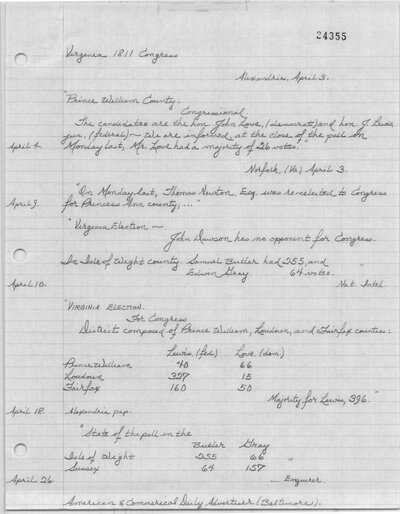 24355
Virginia 1811 Congress
Alexandria, April 3.
"Prince William County.
Congressional
The candidates are the hon. John Love, (democrat) and hon. J. Lewis
jun. (federal) — We are informed at the close of the poll on
April 4. Monday last, Mr. Love had a majority of 26 votes."
Norfolk, (Va) April 3.
"On Monday last, Thomas Newton, Esq. was re-elected to Congress
April 9. for Princess Ann county;...."
"Virginia Election —
John Dawson has no opponent for Congress.
In Isle of Wight county Samuel Butler had 255, and
Edwin Gray 64 votes. "
April 10. Nat. Intel.
"VIRGINIA ELECTION.
For Congress
District composed of Prince William, Loudoun, and Fairfax counties:
Lewis. (fed) Love. (dem.)
Prince William 40 66
Loudoun 327 15
Fairfax 160 50
Majority for Lewis, 396. "
April 18. Alexandria pap.
"State of the poll in the
Butler Gray
Isle of Wight 255 66 "
Sussex 64 157
April 26 — Enquirer.
American & Commerical Daily Advertiser (Baltimore).